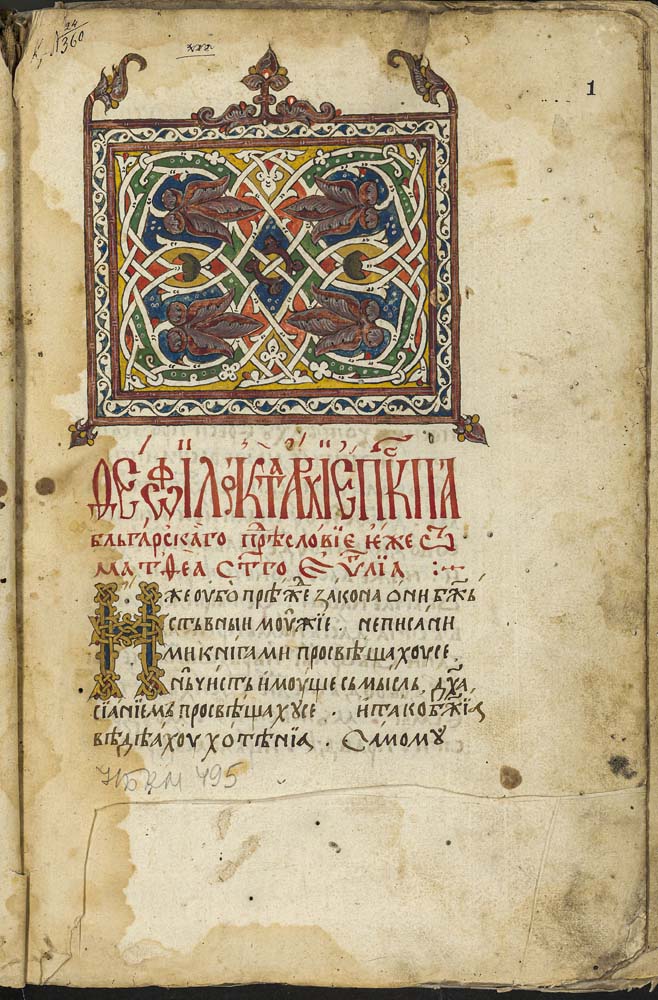 24
360
1
Ѳеѡфилакта архїепⷭ҇кпа
бльга́рскаго пре́словїе е́же ѿ
матѳеа ст҃го еѵⷢ҇лїа :~
Иже оубо прѣжⷣе закона ѡни бжⷭ҇ь
ствьныи моужїе . не писаньі
ми книгами просвѣщахоусе
нь чисть имоуще сьмысль , дх҃а
сїанїемь просвѣщахусе . и тако бж҃їа
вѣдѣахоу хотѣнїа . Самому
НБКМ 795